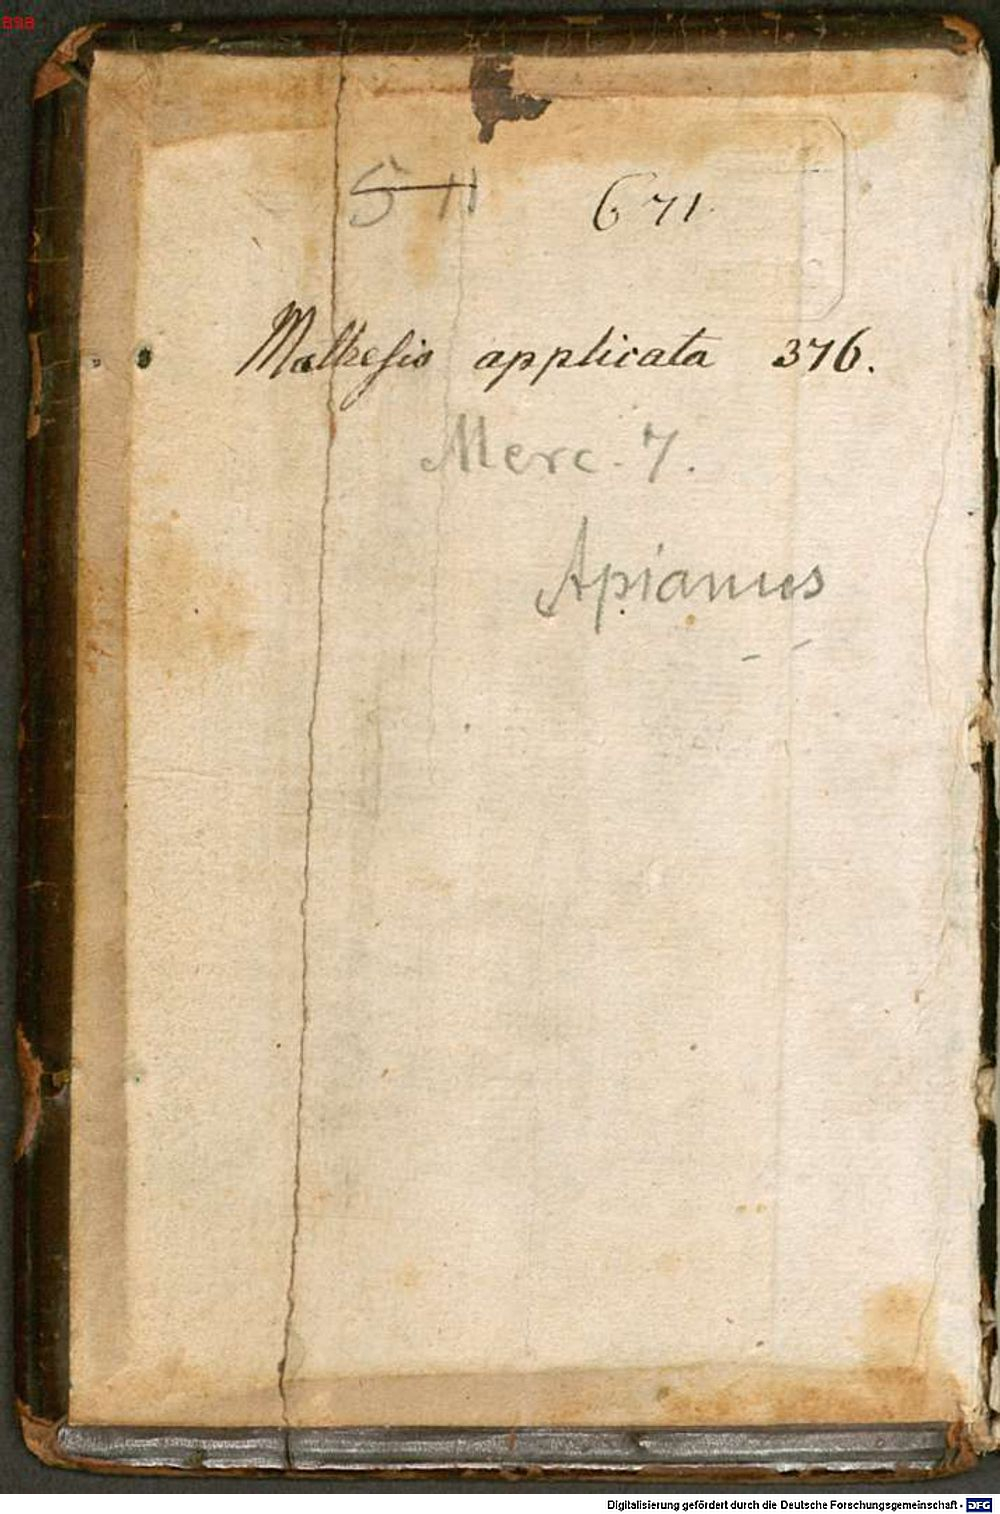 BSB
5 11 671.
Mathesis applicata 376.
Merc. 7.
Apianus
Digitalisierung gefördert durch die Deutsche Forschungsgemeinschaft - DFG